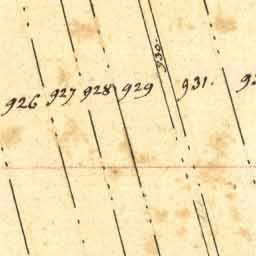 926 927 928 929 930. 931.